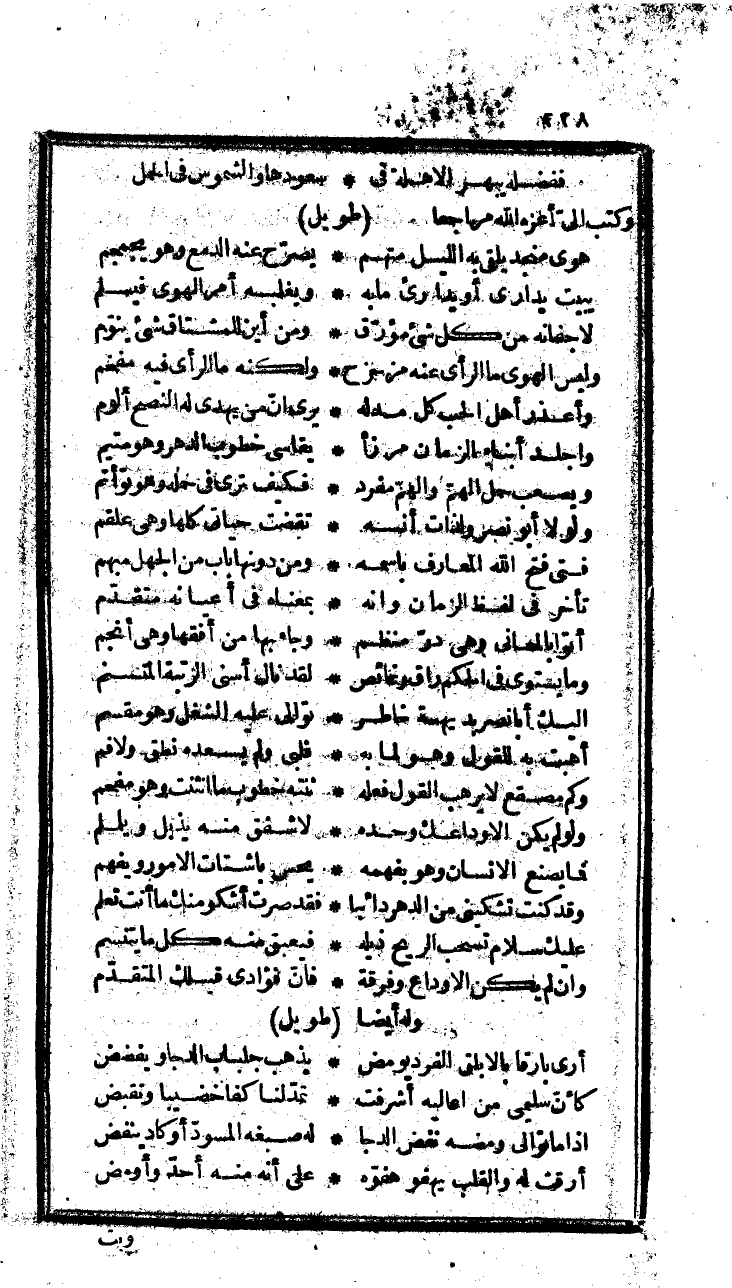 ٢٢٨
ففضله يبهر الاهلة في * سعودها والشموس فى الحمل
وكتب الىّ أعزه الله مراجعا (طويل)
هوى منجد يلقى به الليل متهم * يصرّح عنه الدمع وهو يجمجم
يبيت يدارى أو يدارئ مابه * ويغلبه أمر الهوى فيسلم
لاجفانه من كل شئ مؤرّق * ومن أين للمشتاق شئ ينوّم
وليس الهوى ما الرأى عنه مزحزح * ولكنه ما الرأى فيه مفخم
وأعذر أهل الحب كل مدله * يرى انّ من يهدى له النصح ألوم
واجلد أبناء الزمان مرزأ * يقاسى خطوب الدهر وهو متيم
ويصعب حمل الهمّ والهمّ مفرد * فكيف ترى فى حمله وهو توأم
ولولا أبو نصر ولذات أنسه * تقضت حياتى كلها وهى علقم
فتى فتح الله المعارف باسمه * ومن دونها باب من الجهل مبهم
تأخر فى لفظ الزمان وانه * بمعناه فى أعيانه متقدّم
أتوا بالمعانى وهى درّ منظم * وجاء بها من أفقها وهى أنجم
وما يستوى فى الحكم راق وغائص * لقد نال أسنى الرتبة المتسنم
اليك أبا نصر بديهة خاطر * توالى عليه الشغل وهو مقسم
أهبت به للقول وهو لما به * قلبى ولم يسعده نطق ولا فم
وكم مصقع لا يرهب القول فعله * ثنته خطوب ما انثنت وهو مفحم
ولو لم يكن الا وداعك وحده * لاشفق منه يذبل ويلملم
فما يصنع الانسان وهو بفهمه * يحس باشتات الامور ويفهم
وقد كنت تشكينى من الدهر دائبا * فقد صرت أشكو منك ما أنت تعلم
عليك سلام تسحب الريح ذيله * فيعبق منه كل ما يتنسم
وان لم يكن الا وداع وفرقة * فانّ فؤادى قبلك المتقدّم
وله أيضا (طويل)
أرى بارقا بالابلق الفرد يومض * يذهب جلباب الدجا ويفضض
كأنّ سليمى من اعاليه أشرفت * تمدّ لنا كفا خضيبا وتقبض
اذا ما توالى ومضه نفض الدجا * له صبغه المسودّ أو كاد ينفض
أرقت له والقلب يهفو هفوّه * على أنه منه أحدّ وأومض
وبت